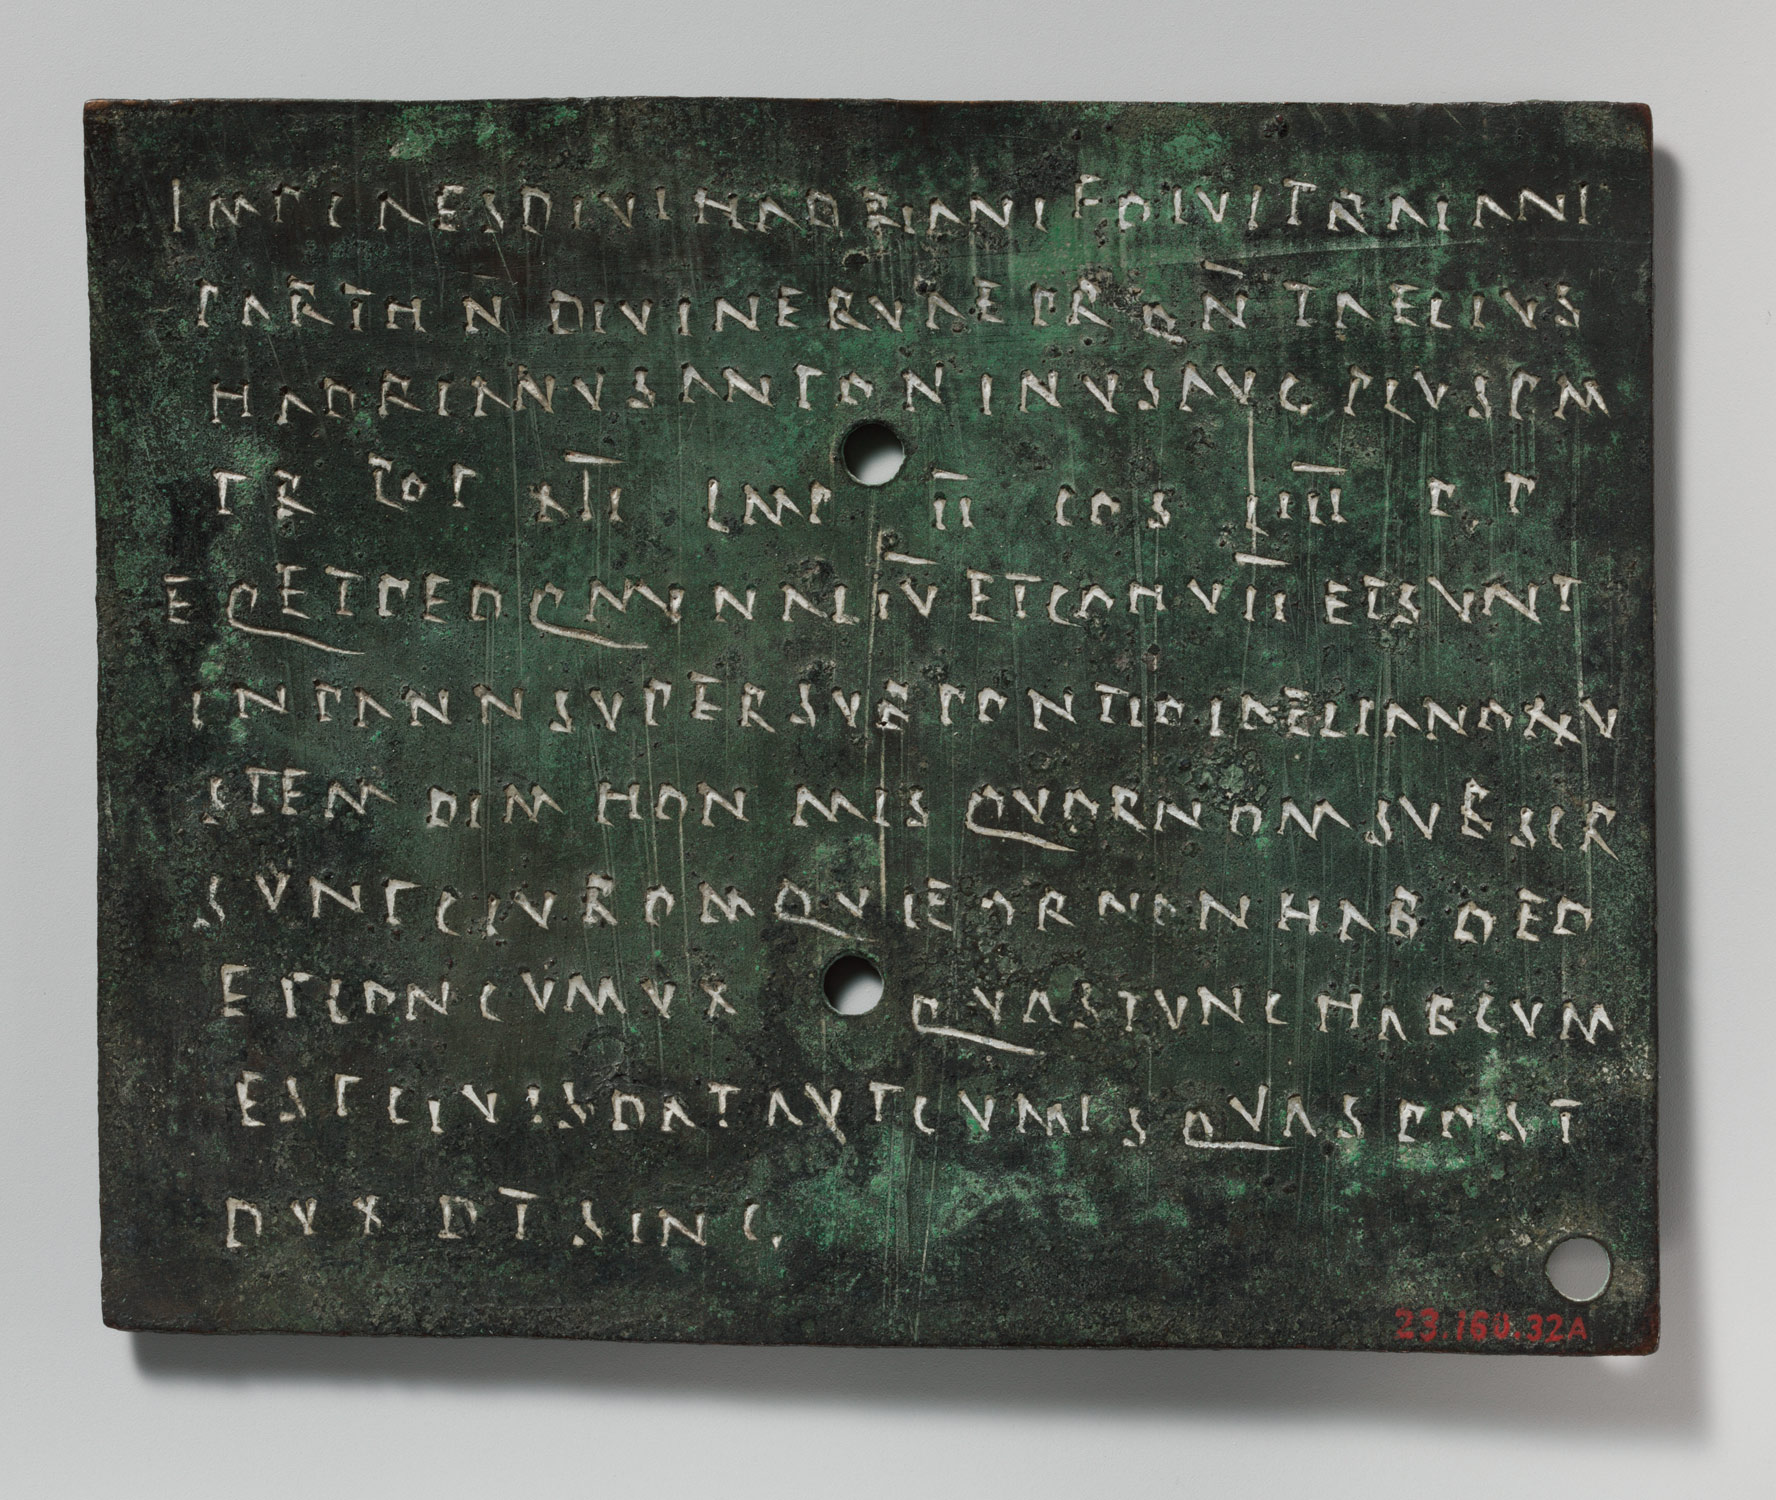 IMP CAES DIVI HADRIANI F DIVI TRAIANI
PARTH N DIVI NERVAE PRON T AELIVS
HADRIANVS ANTONINVS AVG PIVS P M
TR POT XII IMP II COS IIII P P
EQ ET PED Q M IN AL IV ET COH VII ET SVNT
IN PANN SVPER SVB PONTIO LAELIANO XXV
STEM DIM HON MIS QVOR NOM SVBSCR
SVNT CIV ROM QVI EOR NON HAB DED
ET CON CVM VX QVAS TVNC HAB CVM
EST CIVIS DAT AVT CVM IS QVAS POST
DVX DT SINC
23.160.32A